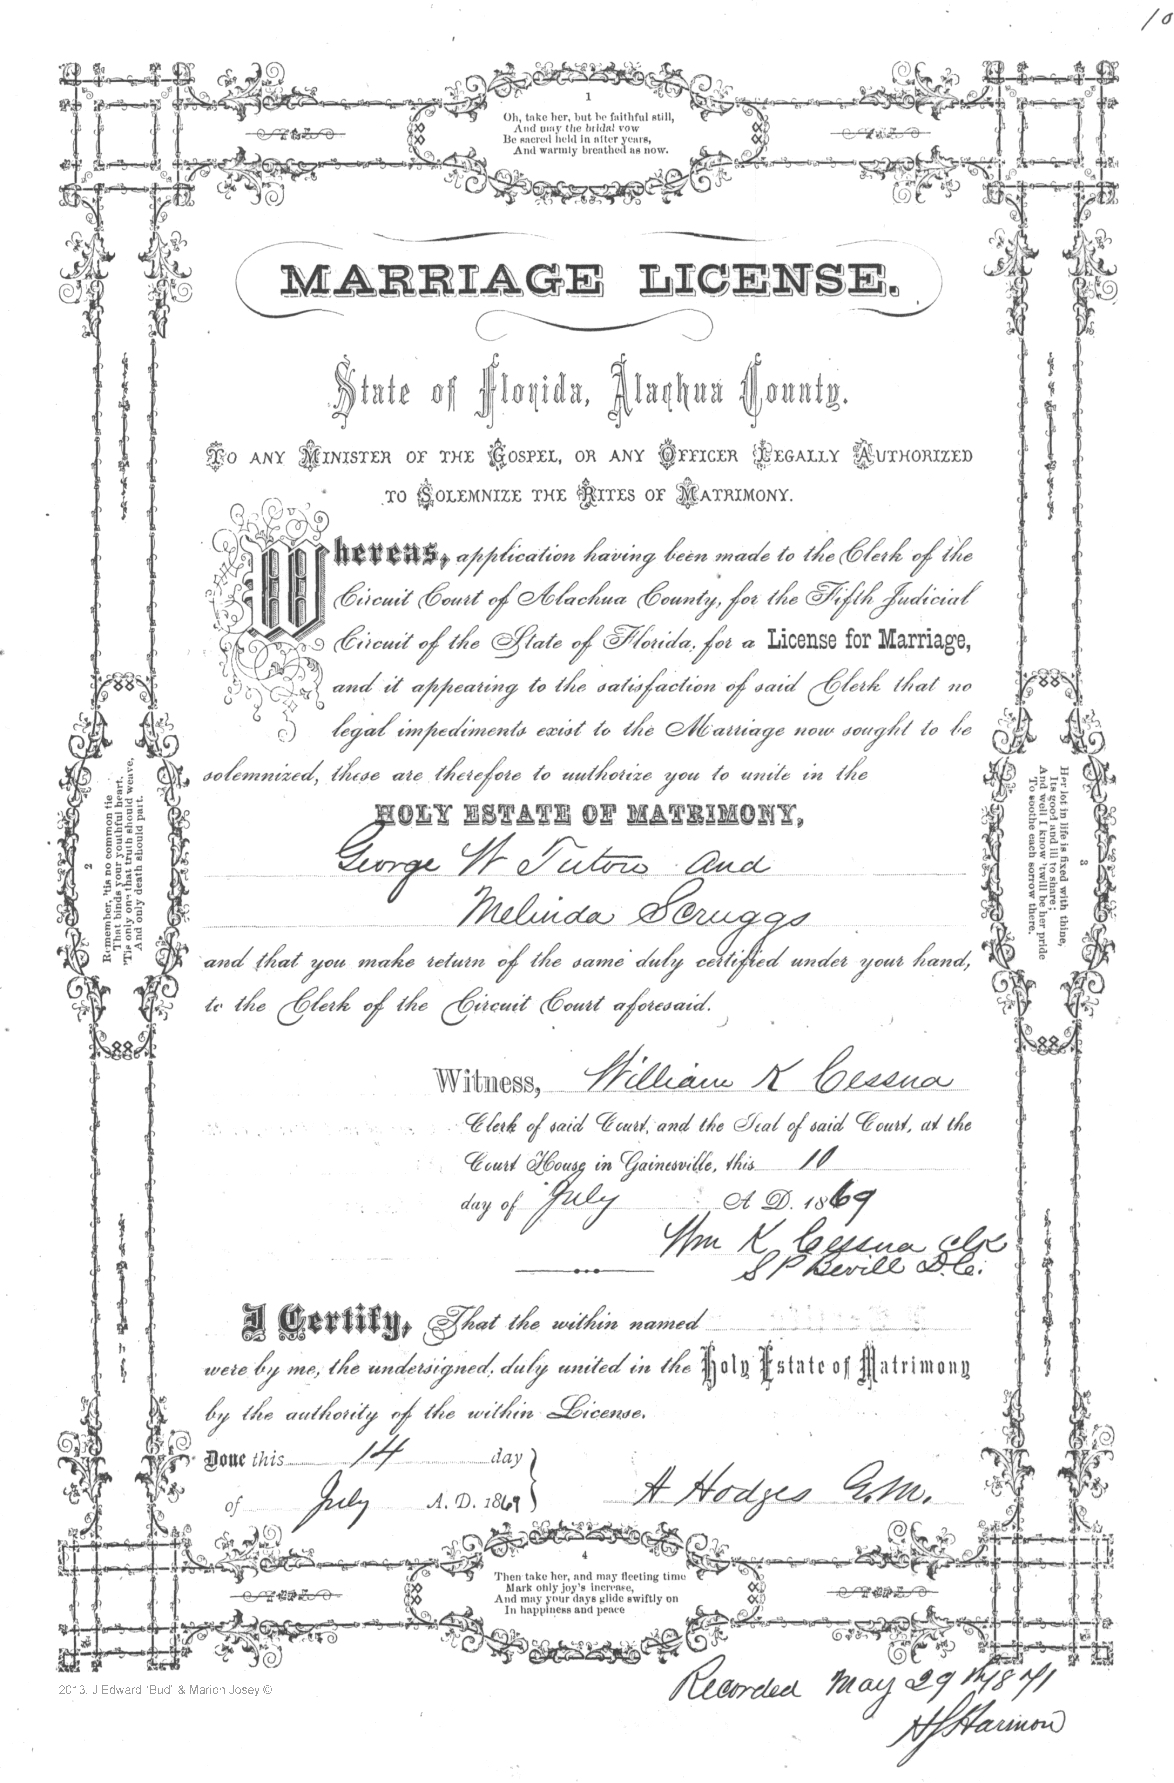 10
1
Oh, take her, but be faithful still,
And may the bridal vow
Be sacred held in after years,
And warmly breathed as now.
MARRIAGE LICENSE.
State of Florida, Alachua County.
TO ANY MINISTER OF THE GOSPEL, OR ANY OFFICER LEGALLY AUTHORIZED
TO SOLEMNIZE THE RITES OF MATRIMONY.
Whereas, application having been made to the Clerk of the
Circuit Court of Alachua County, for the Fifth Judicial
Circuit of the State of Florida, for a License for Marriage,
and it appearing to the satisfaction of said Clerk that no
legal impediments exist to the Marriage now sought to be
solemnized, these are therefore to authorize you to unite in the
HOLY ESTATE OF MATRIMONY,
George W Tuton and
Melinda Scruggs
and that you make return of the same duly certified under your hand,
to the Clerk of the Circuit Court aforesaid.
2
Remember, 'tis no common tie
That binds your youthful heart,
'Tis only one that truth should weave,
And only death should part.
3
Her lot in life is fixed with thine,
Its good and ill to share;
And well I know 'twill be her pride
To soothe each sorrow there.
Witness, William K Cessna
Clerk of said Court, and the Seal of said Court, at the
Court House in Gainesville, this 10
day of July A D. 1869
Wm K Cessna clk
S P Bevill D.C.
I Certify, That the within named
were by me, the undersigned, duly united in the Holy Estate of Matrimony
by the authority of the within License.
Done this 14 day
of July A. D. 1869
A Hodges E.M.
4
Then take her, and may fleeting time
Mark only joy's increase,
And may your days glide swiftly on
In happiness and peace
2013. J Edward 'Bud' & Marion Josey ©
Recorded May 29th 1871
Harmon